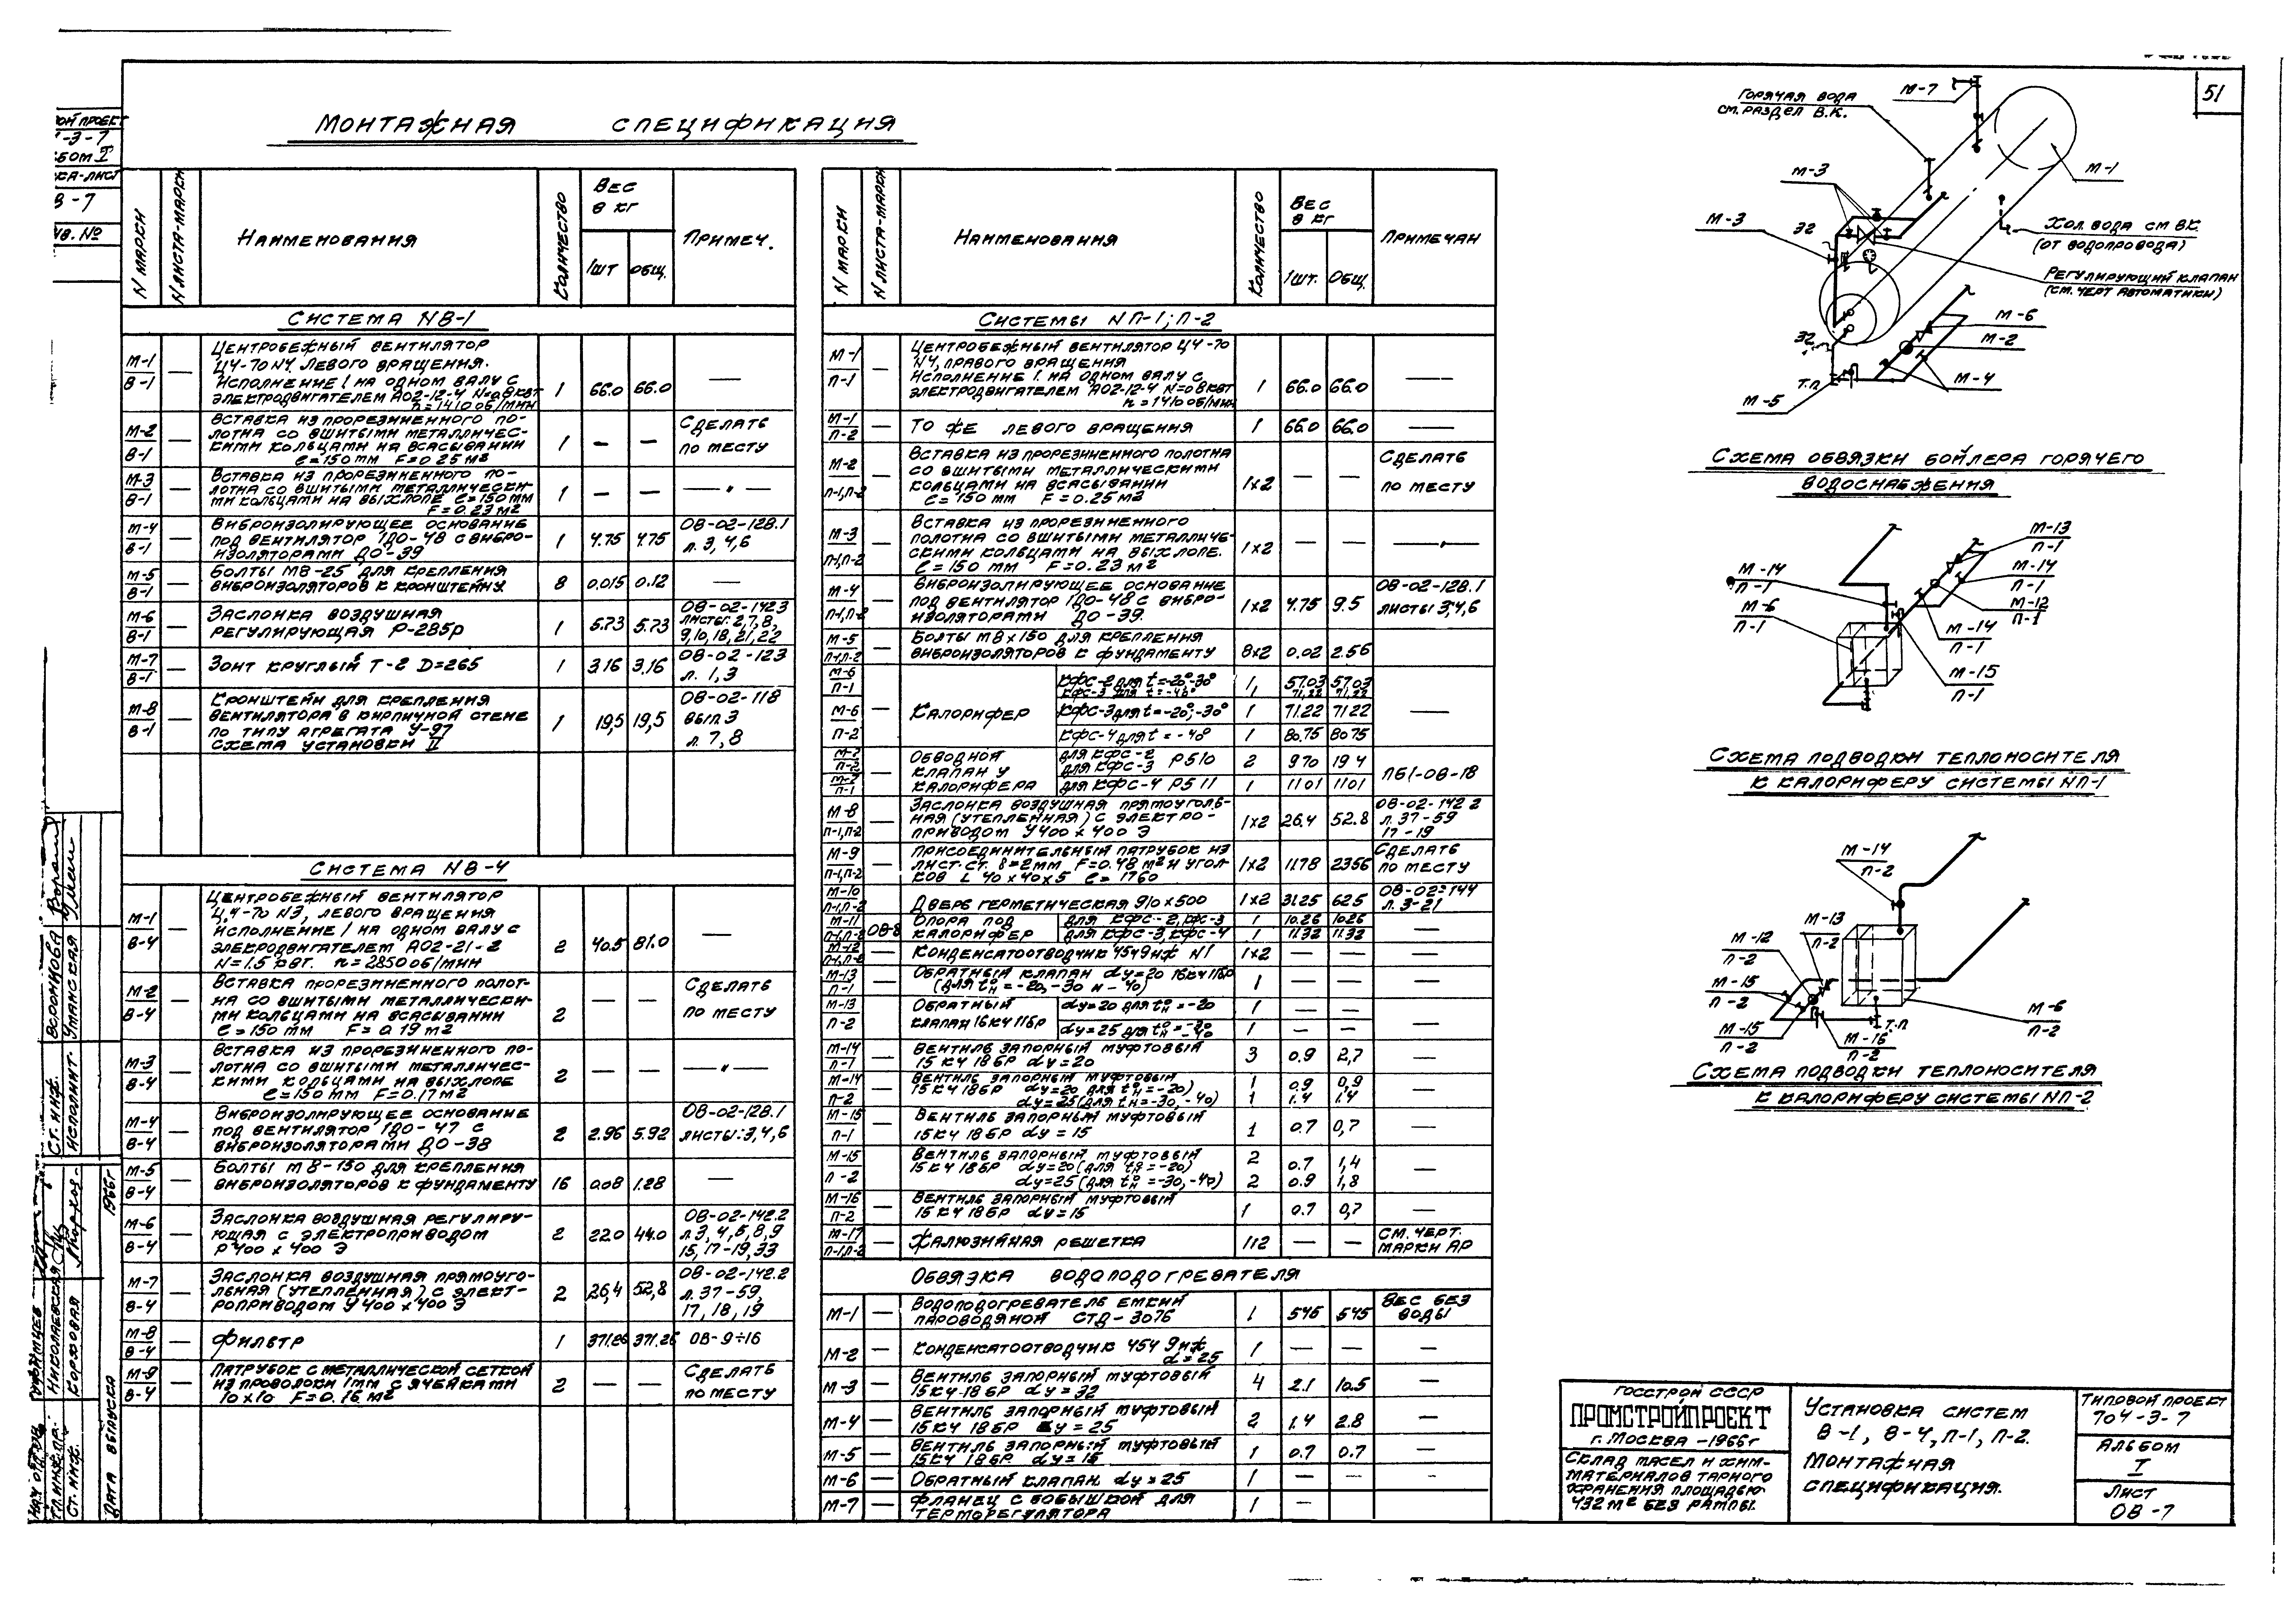 51
МОНТАЖНАЯ СПЕЦИФИКАЦИЯ
N МАРКИ
N ЛИСТА-МАРКИ
НАИМЕНОВАНИЯ
КОЛИЧЕСТВО
ВЕС В КГ
1ШТ ОБЩ.
ПРИМЕЧ.
СИСТЕМА NВ-1
М-1 В-1 — ЦЕНТРОБЕЖНЫЙ ВЕНТИЛЯТОР
Ц4-70 N4 ЛЕВОГО ВРАЩЕНИЯ.
ИСПОЛНЕНИЕ 1 НА ОДНОМ ВАЛУ С
ЭЛЕКТРОДВИГАТЕЛЕМ АО2-12-4 N=0.8 КВТ
n=1410 ОБ/МИН 1 66.0 66.0 —
М-2 В-1 — ВСТАВКА ИЗ ПРОРЕЗИНЕННОГО ПО-
ЛОТНА СО ВШИТЫМИ МЕТАЛЛИЧЕС-
КИМИ КОЛЬЦАМИ НА ВСАСЫВАНИИ
ℓ=150 мм F=0.25 м2 1 — — СДЕЛАТЬ ПО МЕСТУ
М-3 В-1 — ВСТАВКА ИЗ ПРОРЕЗИНЕННОГО ПО-
ЛОТНА СО ВШИТЫМИ МЕТАЛЛИЧЕСКИ-
МИ КОЛЬЦАМИ НА ВЫХЛОПЕ ℓ=150 мм
F=0.23 м2 1 — — —"—
М-4 В-1 — ВИБРОИЗОЛИРУЮЩЕЕ ОСНОВАНИЕ
ПОД ВЕНТИЛЯТОР 1ДО-48 С ВИБРО-
ИЗОЛЯТОРАМИ ДО-39 1 4.75 4.75 ОВ-02-128.1 л. 3,4,6
М-5 В-1 — БОЛТЫ М8-25 ДЛЯ КРЕПЛЕНИЯ
ВИБРОИЗОЛЯТОРОВ К КРОНШТЕЙНУ 8 0.015 0.12 —
М-6 В-1 — ЗАСЛОНКА ВОЗДУШНАЯ
РЕГУЛИРУЮЩАЯ Р-285р 1 5.73 5.73 ОВ-02-142.3 ЛИСТЫ: 2,7,8, 9,10,18,21,22
М-7 В-1 — ЗОНТ КРУГЛЫЙ Т-2 D=265 1 3.16 3.16 ОВ-02-123 л. 1,3
М-8 В-1 — КРОНШТЕЙН ДЛЯ КРЕПЛЕНИЯ
ВЕНТИЛЯТОРА В КИРПИЧНОЙ СТЕНЕ
ПО ТИПУ АГРЕГАТА У-97
СХЕМА УСТАНОВКИ II 1 19,5 19,5 ОВ-02-118 ВЫП.3 л. 7,8
СИСТЕМА NВ-4
М-1 В-4 ЦЕНТРОБЕЖНЫЙ ВЕНТИЛЯТОР
Ц.4-70 N3, ЛЕВОГО ВРАЩЕНИЯ
ИСПОЛНЕНИЕ 1 НА ОДНОМ ВАЛУ С
ЭЛЕКРОДВИГАТЕЛЕМ АО2-21-2
N=1.5 КВТ. n=2850 ОБ/МИН 2 40.5 81.0 —
М-2 В-4 — ВСТАВКА ПРОРЕЗИНЕННОГО ПОЛОТ-
НА СО ВШИТЫМИ МЕТАЛЛИЧЕСКИ-
МИ КОЛЬЦАМИ НА ВСАСЫВАНИИ
ℓ=150 мм F=0.19 м2 2 — — СДЕЛАТЬ ПО МЕСТУ
М-3 В-4 — ВСТАВКА ИЗ ПРОРЕЗИНЕННОГО ПО-
ЛОТНА СО ВШИТЫМИ МЕТАЛЛИЧЕС-
КИМИ КОЛЬЦАМИ НА ВЫХЛОПЕ
ℓ=150 мм F=0.17 м2 2 — — —"—
М-4 В-4 — ВИБРОИЗОЛИРУЮЩЕЕ ОСНОВАНИЕ
ПОД ВЕНТИЛЯТОР 1ДО-47 С
ВИБРОИЗОЛЯТОРАМИ ДО-38 2 2.96 5.92 ОВ-02-128.1 ЛИСТЫ: 3,4,6
М-5 В-4 — БОЛТЫ М8-150 ДЛЯ КРЕПЛЕНИЯ
ВИБРОИЗОЛЯТОРОВ К ФУНДАМЕНТУ 16 0.08 1.28 —
М-6 В-4 — ЗАСЛОНКА ВОЗДУШНАЯ РЕГУЛИРУ-
ЮЩАЯ С ЭЛЕКТРОПРИВОДОМ
Р 400 х 400 Э 2 22.0 44.0 ОВ-02-142.2 л.3,4,5,8,9 15,17-19,33
М-7 В-4 — ЗАСЛОНКА ВОЗДУШНАЯ ПРЯМОУГО-
ЛЬНАЯ (УТЕПЛЕННАЯ) С ЭЛЕКТ-
РОПРИВОДОМ У 400 х 400 Э 2 26,4 52,8 ОВ-02-142.2 л.37-59, 17,18,19
М-8 В-4 — ФИЛЬТР 1 371.26 371.26 ОВ-9÷16
М-9 В-4 — ПАТРУБОК С МЕТАЛЛИЧЕСКОЙ СЕТКОЙ
ИЗ ПРОВОЛОКИ 1мм С ЯЧЕЙКАМИ
10х10 F=0.16 м2 2 — — СДЕЛАТЬ ПО МЕСТУ
N МАРКИ
N ЛИСТА-МАРКИ
НАИМЕНОВАНИЯ
КОЛИЧЕСТВО
ВЕС В КГ
1ШТ. ОБЩ.
ПРИМЕЧАН
СИСТЕМЫ NП-1; П-2
М-1 П-1 — ЦЕНТРОБЕЖНЫЙ ВЕНТИЛЯТОР Ц4-70
N4, ПРАВОГО ВРАЩЕНИЯ
ИСПОЛНЕНИЕ 1. НА ОДНОМ ВАЛУ С
ЭЛЕКТРОДВИГАТЕЛЕМ АО2-12-4 N=0.8 КВТ
n=1410 ОБ/МИН 1 66.0 66.0 —
М-1 П-2 — ТО ЖЕ ЛЕВОГО ВРАЩЕНИЯ 1 66.0 66.0 —
М-2 П-1,П-2 — ВСТАВКА ИЗ ПРОРЕЗИНЕННОГО ПОЛОТНА
СО ВШИТЫМИ МЕТАЛЛИЧЕСКИМИ
КОЛЬЦАМИ НА ВСАСЫВАНИИ
ℓ=150 мм F=0.25 м2 1х2 — — СДЕЛАТЬ ПО МЕСТУ
М-3 П-1,П-2 — ВСТАВКА ИЗ ПРОРЕЗИНЕННОГО
ПОЛОТНА СО ВШИТЫМИ МЕТАЛЛИЧЕ-
СКИМИ КОЛЬЦАМИ НА ВЫХЛОПЕ.
ℓ=150 мм F=0.23 м2 1х2 — — —"—
М-4 П-1,П-2 — ВИБРОИЗОЛИРУЮЩЕЕ ОСНОВАНИЕ
ПОД ВЕНТИЛЯТОР 1ДО-48 С ВИБРО-
ИЗОЛЯТОРАМИ ДО-39. 1х2 4.75 9.5 ОВ-02-128.1 ЛИСТЫ 3,4,6
М-5 П-1,П-2 — БОЛТЫ М8х150 ДЛЯ КРЕПЛЕНИЯ
ВИБРОИЗОЛЯТОРОВ К ФУНДАМЕНТУ 8х2 0.02 2.56
М-6 П-1 КАЛОРИФЕР КФС-2 ДЛЯ t=-20°-30° 1, 57.03 57.03
КФС-3 ДЛЯ t=-40° 71.22 71.22
М-6 П-2 КФС-3 ДЛЯ t=-20°;-30° 1 71.22 71.22 —
КФС-4 ДЛЯ t=-40 1 80.75 80.75
М-7 П-2 — ОБВОДНОЙ КЛАПАН У КАЛОРИФЕРА ДЛЯ КФС-2
ДЛЯ КФС-3 Р510 2 970 194 ПБ1-ОВ-18
М-7 П-1 ДЛЯ КФС-4 Р511 1 1101 1101
М-8 П-1,П-2 — ЗАСЛОНКА ВОЗДУШНАЯ ПРЯМОУГОЛЬ-
НАЯ (УТЕПЛЕННАЯ) С ЭЛЕКТРО-
ПРИВОДОМ У400 х 400 Э 1х2 26.4 52.8 ОВ-02-142.2 л.37-59 17-19
М-9 П-1,П-2 — ПРИСОЕДИНИТЕЛЬНЫЙ ПАТРУБОК ИЗ
ЛИСТ. СТ. δ=2мм F=0.48 м2 И УГОЛ-
КОВ L 40х40х5 ℓ=1760 1х2 11.78 23.56 СДЕЛАТЬ ПО МЕСТУ
М-10 П-1,П-2 ДВЕРЬ ГЕРМЕТИЧЕСКАЯ 910х500 1х2 31.25 62.5 ОВ-02-144 л. 3-21
М-11 П-1,П-2 ОВ-8 ОПОРА ПОД КАЛОРИФЕР ДЛЯ КФС-2, КФС-3 1 10.26 10.26
ДЛЯ КФС-3, КФС-4 1 11.32 11.32 —
М-12 П-1,П-2 — КОНДЕНСАТООТВОДЧИК 45ч9нж N1 1х2 — — —
М-13 П-1 — ОБРАТНЫЙ КЛАПАН dу=20 16КЧ11БР
(ДЛЯ tн°=-20,-30 и -40) 1 — —
М-13 П-2 ОБРАТНЫЙ КЛАПАН 16КЧ11БР dу=20 ДЛЯ tн°=-20 1 — —
dу=25 ДЛЯ tн°=-30 -40 1 — — —
М-14 П-1 — ВЕНТИЛЬ ЗАПОРНЫЙ МУФТОВЫЙ
15КЧ18БР dу=20 3 0.9 2,7 —
М-14 П-2 — ВЕНТИЛЬ ЗАПОРНЫЙ МУФТОВЫЙ
15КЧ18БР dу=20 (ДЛЯ tн°=-20) 1 0.9 0,9 —
dу=25 (ДЛЯ tн=-30,-40) 1 1.4 1,4
М-15 П-1 — ВЕНТИЛЬ ЗАПОРНЫЙ МУФТОВЫЙ
15КЧ18БР dу=15 1 0.7 0,7 —
М-15 П-2 — ВЕНТИЛЬ ЗАПОРНЫЙ МУФТОВЫЙ
15КЧ18БР dу=20 (ДЛЯ tн°=-20) 2 0.7 1,4 —
dу=25 (ДЛЯ tн°=-30,-40) 2 0.9 1,8
М-16 П-2 — ВЕНТИЛЬ ЗАПОРНЫЙ МУФТОВЫЙ
15КЧ18БР dу=15 1 0.7 0,7 —
М-17 П-1,П-2 — ЖАЛЮЗИЙНАЯ РЕШЕТКА 112 — — СМ. ЧЕРТ. МАРКИ АР
ОБВЯЗКА ВОДОПОДОГРЕВАТЕЛЯ
М-1 — ВОДОПОДОГРЕВАТЕЛЬ ЕМКИЙ
ПАРОВОДЯНОЙ СТД-3076 1 545 545 ВЕС БЕЗ ВОДЫ
М-2 — КОНДЕНСАТООТВОДЧИК 45ч9нж
d=25 1 — — —
М-3 — ВЕНТИЛЬ ЗАПОРНЫЙ МУФТОВЫЙ
15КЧ-18БР dу=32 4 2.1 10.5 —
М-4 — ВЕНТИЛЬ ЗАПОРНЫЙ МУФТОВЫЙ
15КЧ18БР dу=25 2 1.4 2.8 —
М-5 — ВЕНТИЛЬ ЗАПОРНЫЙ МУФТОВЫЙ
15КЧ18БР dу=15 1 0.7 0.7 —
М-6 — ОБРАТНЫЙ КЛАПАН dу=25 1 — — —
М-7 — ФЛАНЕЦ С БОБЫШКОЙ ДЛЯ
ТЕРМОРЕГУЛЯТОРА 1 —
ГОРЯЧАЯ ВОДА
СМ. РАЗДЕЛ В.К.
М-7
М-1
М-3
М-3
32
ХОЛ. ВОДА СМ ВК
(ОТ ВОДОПРОВОДА)
РЕГУЛИРУЮЩИЙ КЛАПАН
(СМ. ЧЕРТ АВТОМАТИКИ)
М-6
32
М-2
Т.П
М-4
М-5
СХЕМА ОБВЯЗКИ БОЙЛЕРА ГОРЯЧЕГО
ВОДОСНАБЖЕНИЯ
М-13 П-1
М-14 П-1
М-14 П-1
М-6 П-1
М-12 П-1
М-14 П-1
М-15 П-1
СХЕМА ПОДВОДКИ ТЕПЛОНОСИТЕЛЯ
К КАЛОРИФЕРУ СИСТЕМЫ NП-1
М-14 П-2
М-13 П-2
М-12 П-2
М-15 П-2
М-6 П-2
М-15 П-2
Т.П
М-16 П-2
СХЕМА ПОДВОДКИ ТЕПЛОНОСИТЕЛЯ
К КАЛОРИФЕРУ СИСТЕМЫ NП-2
ГОССТРОЙ СССР
ПРОМСТРОЙПРОЕКТ
г. МОСКВА -1966г
СКЛАД МАСЕЛ И ХИМ-
МАТЕРИАЛОВ ТАРНОГО
ХРАНЕНИЯ ПЛОЩАДЬЮ
432 м2 БЕЗ РАМПЫ.
УСТАНОВКА СИСТЕМ
В-1, В-4, П-1, П-2.
МОНТАЖНАЯ
СПЕЦИФИКАЦИЯ.
ТИПОВОЙ ПРОЕКТ
704-3-7
АЛЬБОМ
I
ЛИСТ
ОВ-7
ОЙ ПРОЕКТ
-3-7
БОМ I
КА-ЛИСТ
В-7
ИВ. №
СТ. ИНЖ. ВОРОНОВА
ИСПОЛНИТ. УМАНСКАЯ
НАЧ ОТД
ГЛ.ИНЖ.ПР. НИКОЛАЕВСКАЯ
СТ. ИНЖ. КОРЖОВАЯ
ДАТА ВЫПУСКА 1966г